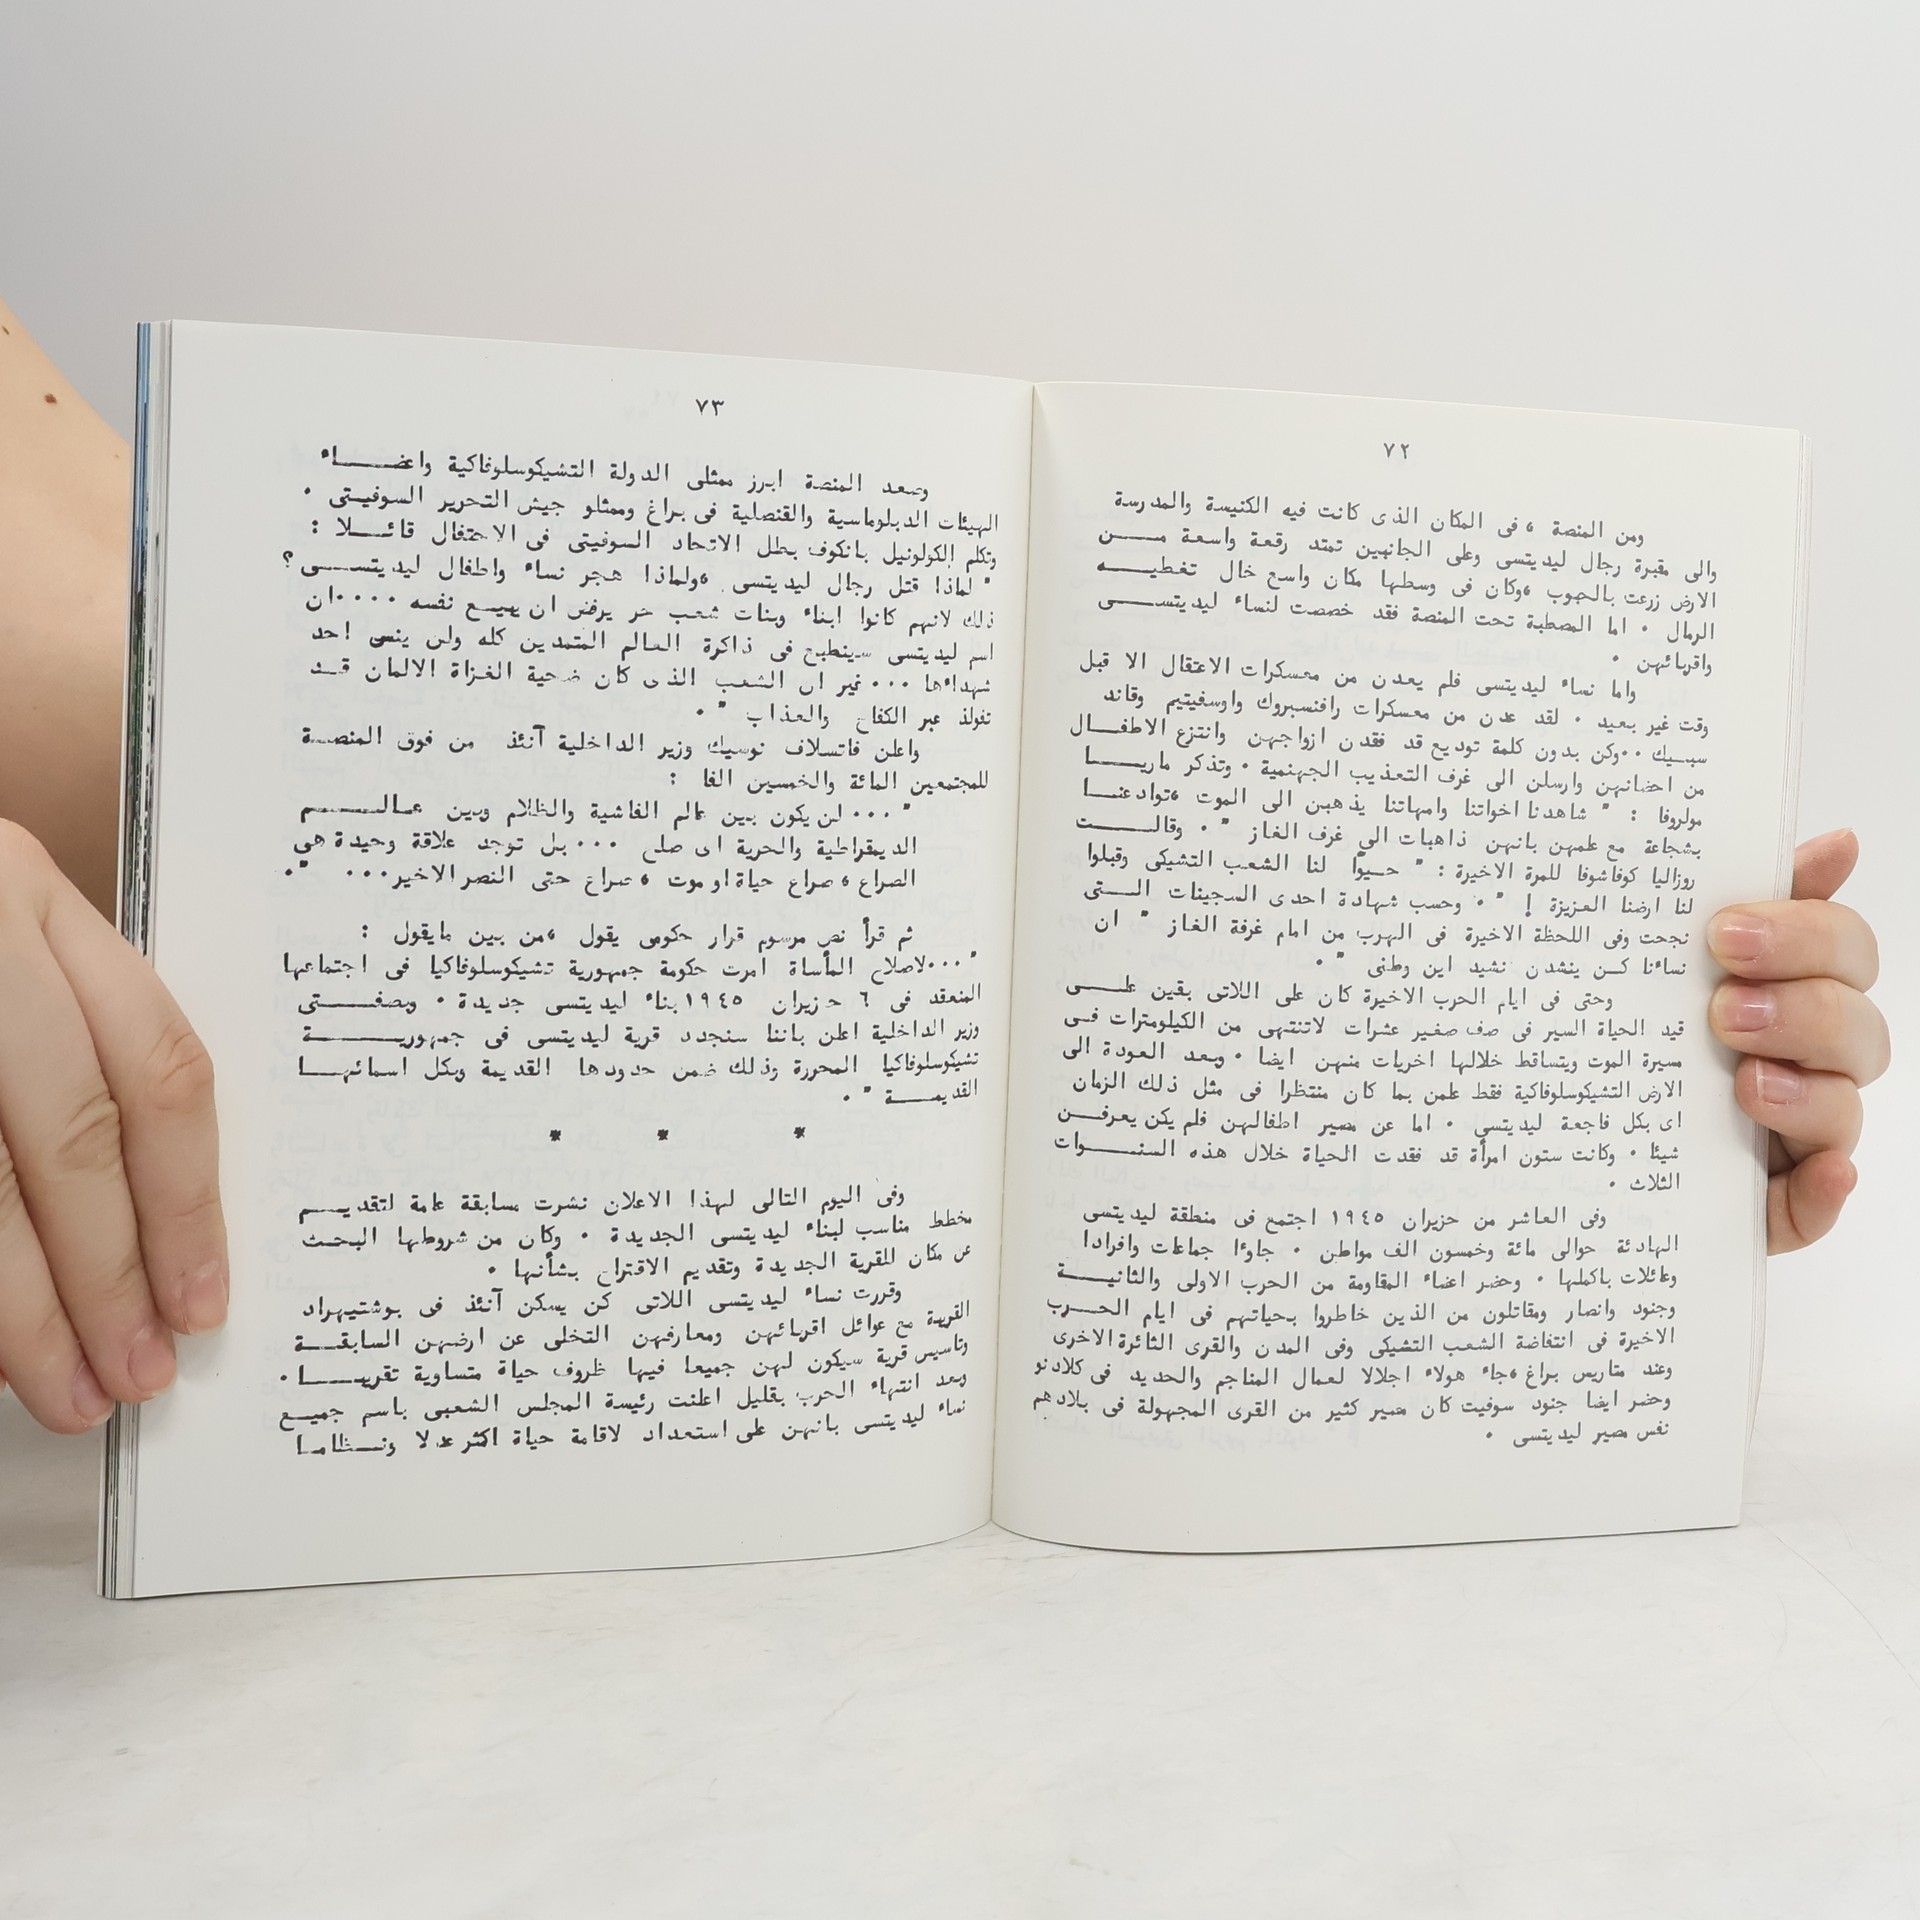 ٧٢
ومن المنصة ، فى المكان الذى كانت فيه الكنيسة والمدرسة
والى مقبرة رجال ليديتسى وعلى الجانبين تمتد رقعة واسعة مـــن
الارض زرعت بالحبوب ،وكان فى وسطها مكان واسع خال تغطيـــه
الرمال . اما المصطبة تحت المنصة فقد خصصت لنساء ليديتســـى
واقربائهن .
واما نساء ليديتسى فلم يعدن من معسكرات الاعتقال الا قبل
وقت غير بعيد . لقد عدن من معسكرات رافنسبروك واوسفيتيم وقاند
سبــيك ..وكن بدون كلمة توديع قد فقدن ازواجهن وانتزع الاطفــال
من احضانهن وارسلن الى غرف التعذيب الجهنمية . وتذكر ماريـــا
مولروفا : " شاهدنا اخواتنا وامهاتنا يذهبن الى الموت ،توادعنـــا
بشجاعة مع علمهن بانهن ذاهبات الى غرف الغاز " . وقالـــت
روزاليا كوفاشوفا للمرة الاخيرة : " حــيوّا لنا الشعب التشيكى وقبلوا
لنا ارضنا العزيزة ! " . وحسب شهادة احدى السجينات الــتى
نجحت وفى اللحظة الاخيرة فى الهرب من امام غرفة الغاز " ان
نساءنا كــن ينشدن نشيد اين وطنى " .
وحتى فى ايام الحرب الاخيرة كان على اللاتى بقين علــى
قيد الحياة السير فى صف صغير عشرات لاتنتهى من الكيلومترات فــى
مسيرة الموت ويتساقط خلالها اخريات منهن ايضا . وبعد العودة الى
الارض التشيكوسلوفاكية فقط علمن بما كان منتظرا فى مثل ذلك الزمان
اى بكل فاجعة ليديتسى . اما عن مصير اطفالهن فلم يكن يعرفــن
شيئا . وكانت ستون امرأة قد فقدت الحياة خلال هذه السنــوات
الثلاث .
وفى العاشر من حزيران ١٩٤٥ اجتمع فى منطقة ليديتسى
الهادئة حوالى مائة وخمسون الف مواطن . جاوٴا جماعات وافرادا
وعائلات باكملها . وحضر اعضاء المقاومة من الحرب الاولى والثانيــة
وجنود وانصار ومقاتلون من الذين خاطروا بحياتهم فى ايام الحــرب
الاخيرة فى انتفاضة الشعب التشيكى وفى المدن والقرى الثائرة الاخرى
وعند متاريس براغ ،جاء هولاء اجلالا لعمال المناجم والحديد فى كلادنو
وحضر ايضا جنود سوفيت كان مصير كثير من القرى المجهولة فى بلادهم
نفس مصير ليديتسى .
٧٣
وصعد المنصة ابرز ممثلى الدولة التشيكوسلوفاكية واعضــاء
الهيئات الدبلوماسية والقنصلية فى براغ وممثلو جيش التحرير السوفيتى .
وتكلم الكولونيل بانكوف بطل الاتحاد السوفيتى فى الاحتفال قائــلا :
" لماذا قتل رجال ليديتسى ،ولماذا هجر نساء واطفال ليديتســى ؟
ذلك لانهم كانوا ابناء وبنات شعب حر يرفض ان يبيع نفسه ....ان
اسم ليديتسى سينطبع فى ذاكرة العالم المتمدين كله ولن ينسى احد
شهداءها ... غير ان الشعب الذى كان ضحية الغزاة الالمان قــد
تفولذ عبر الكفاح والعذاب " .
واعلن فاتسلاف نوسيك وزير الداخلية آنئذ من فوق المنصــة
للمجتمعين المائة والخمسين الفا :
" ... لن يكون بين عالم الفاشية والظلام وبين عــالـــم
الديمقراطية والحرية اى صلح ... بل توجد علاقة وحيدة هى
الصراع ، صراع حياة او موت ، صراع حتى النصر الاخير... " .
ثم قرأ نص مرسوم قرار حكومى يقول ،من بين مايقول :
" ...لاصلاح المأساة امرت حكومة جمهورية تشيكوسلوفاكيا فى اجتماعها
المنعقد فى ٦ حزيران ١٩٤٥ بناء ليديتسى جديدة . وبصفــتى
وزير الداخلية اعلن باننا سنجدد قرية ليديتسى فى جمهوريـــة
تشيكوسلوفاكيا المحررة وذلك ضمن حدودها القديمة وبكل اسمائهــا
القديمــة " .
* * *
وفى اليوم التالى لهذا الاعلان نشرت مسابقة عامة لتقديــم
مخطط مناسب لبناء ليديتسى الجديدة . وكان من شروطها البحــث
عن مكان للقرية الجديدة وتقديم الاقتراح بشأنها .
وقررت نساء ليديتسى اللاتى كن يسكن آنئذ فى بوشتيهراد
القريبة مع عوائل اقربائهن ومعارفهن التخلى عن ارضهن السابقــة
وتاسيس قرية سيكون لهن جميعا فيها ظروف حياة متساوية تقريبــا .
وبعد انتهاء الحرب بقليل اعلنت رئيسة المجلس الشعبى باسم جميــع
نساء ليديتسى بانهن على استعداد لاقامة حياة اكثر عدلا ونــظاما